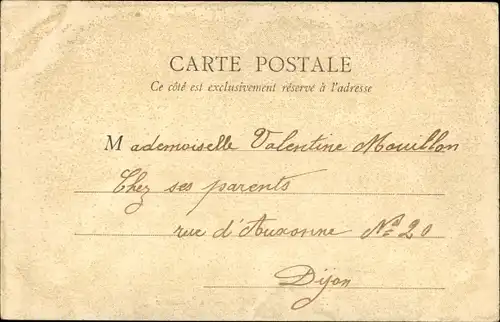 CARTE POSTALE
Ce côté est exclusivement réservé à l'adresse
Mademoiselle Valentine Mouillon
Chez ses parents
rue d'Auxonne No 20
Dijon